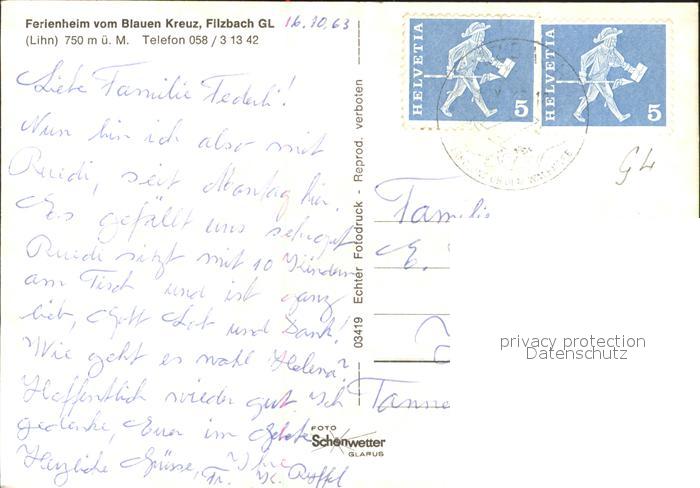 Ferienheim vom Blauen Kreuz, Filzbach GL 16.10.63
(Lihn) 750 m ü. M. Telefon 058 / 3 13 42
Liebe Familie Federli!
Nun bin ich also mit
Ruedi, seit Montag hier.
Es gefällt uns sehr gut
Ruedi sitzt mit 10 Kindern
am Tisch und ist ganz
lieb, Gott Lob und Dank!
Wie geht es wohl Helena?
Hoffentlich wieder gut. Ich
gedenke, Euer im Gebete
Herzliche Grüsse, Ihre
Fr. K.
03419 Echter Fotodruck - Reprod. verboten
FOTO
Schönwetter
GLARUS
HELVETIA 5
HELVETIA 5
GL
Familie
E.
Tanne
privacy protection
Datenschutz